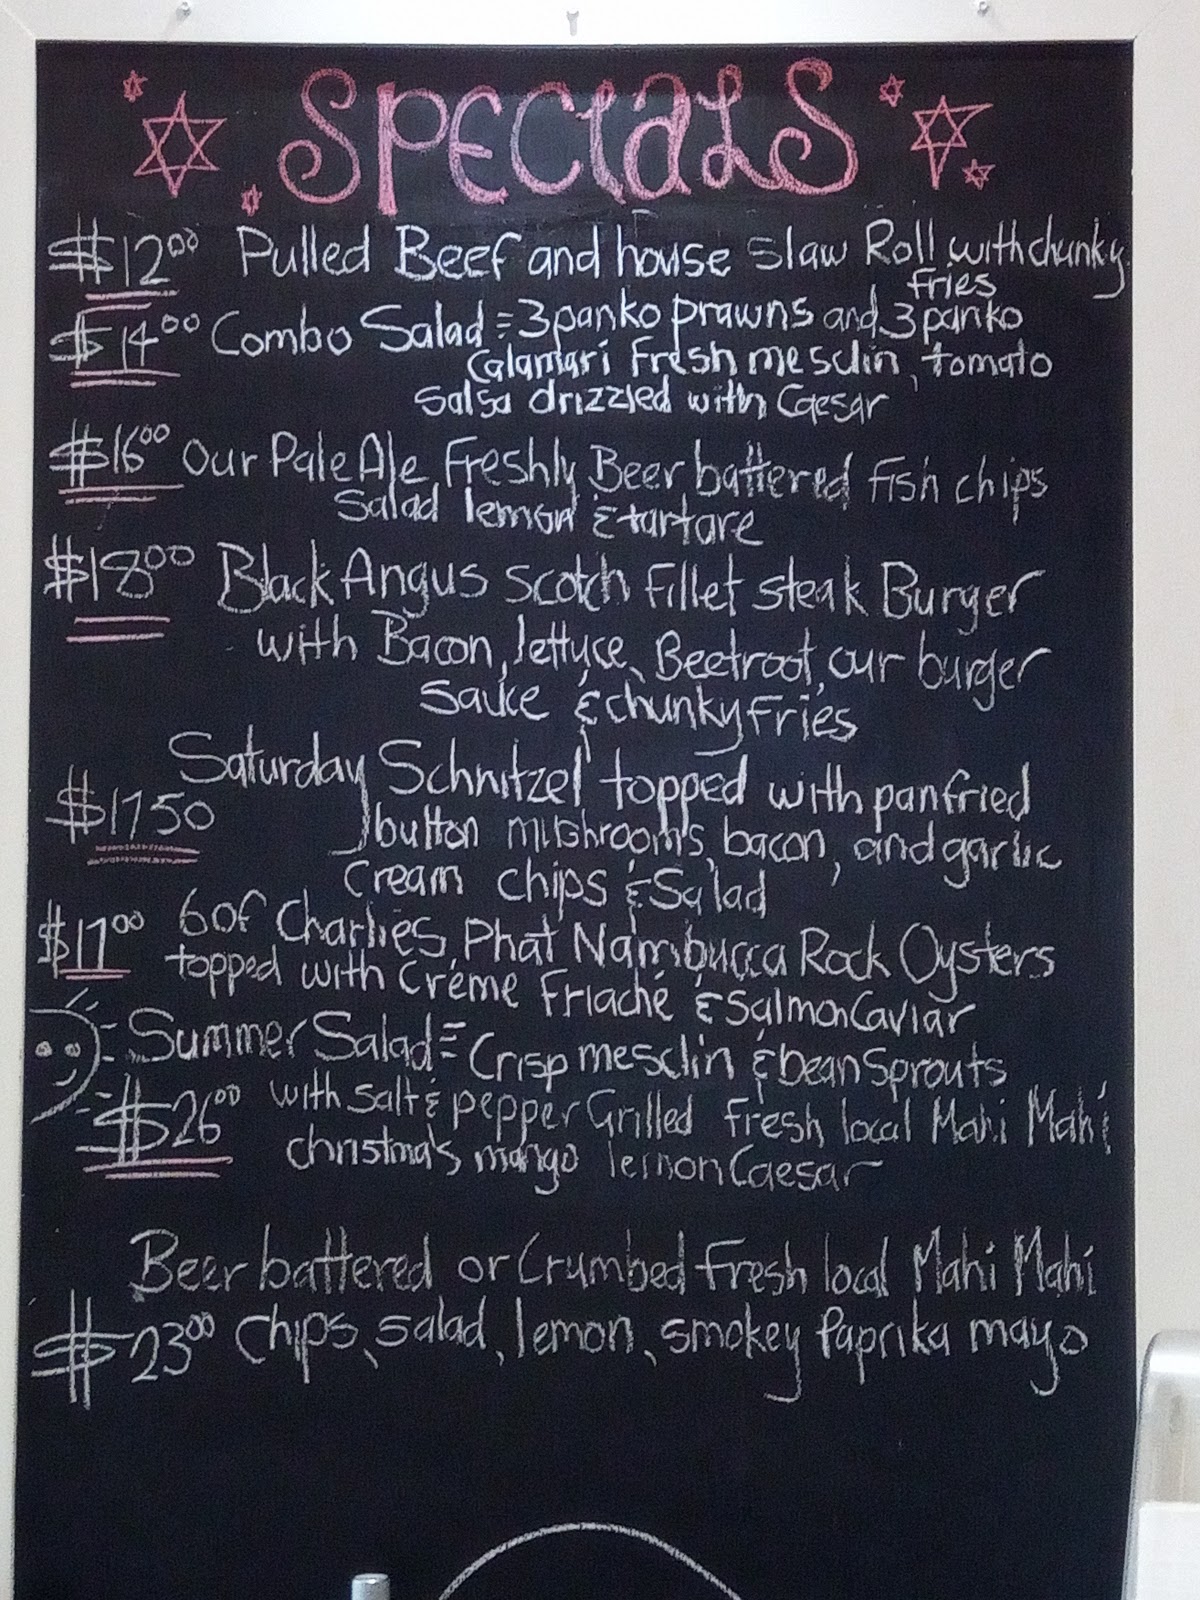 SPECIALS
$12.00 Pulled Beef and house slaw Roll with chunky
fries
$14.00 Combo Salad = 3 panko prawns and 3 panko
Calamari Fresh mesclin, tomato
Salsa drizzled with Caesar
$16.00 Our Pale Ale Freshly Beer battered Fish chips
Salad lemon & tartare
$18.00 Black Angus Scotch Fillet steak Burger
with Bacon, lettuce, Beetroot, our burger
sauce & chunky Fries
Saturday Schnitzel topped with panfried
$17.50 button mushrooms, bacon, and garlic
Cream chips & Salad
$17.00 6 of Charlies, Phat Nambucca Rock Oysters
topped with Créme Friaché & Salmon Caviar
Summer Salad = Crisp mesclin & bean Sprouts
$26.00 with salt & pepper Grilled fresh local Mahi Mahi
christmas mango lemon Caesar
Beer battered or Crumbed Fresh local Mahi Mahi
$23.00 Chips, salad, lemon, smokey Paprika mayo